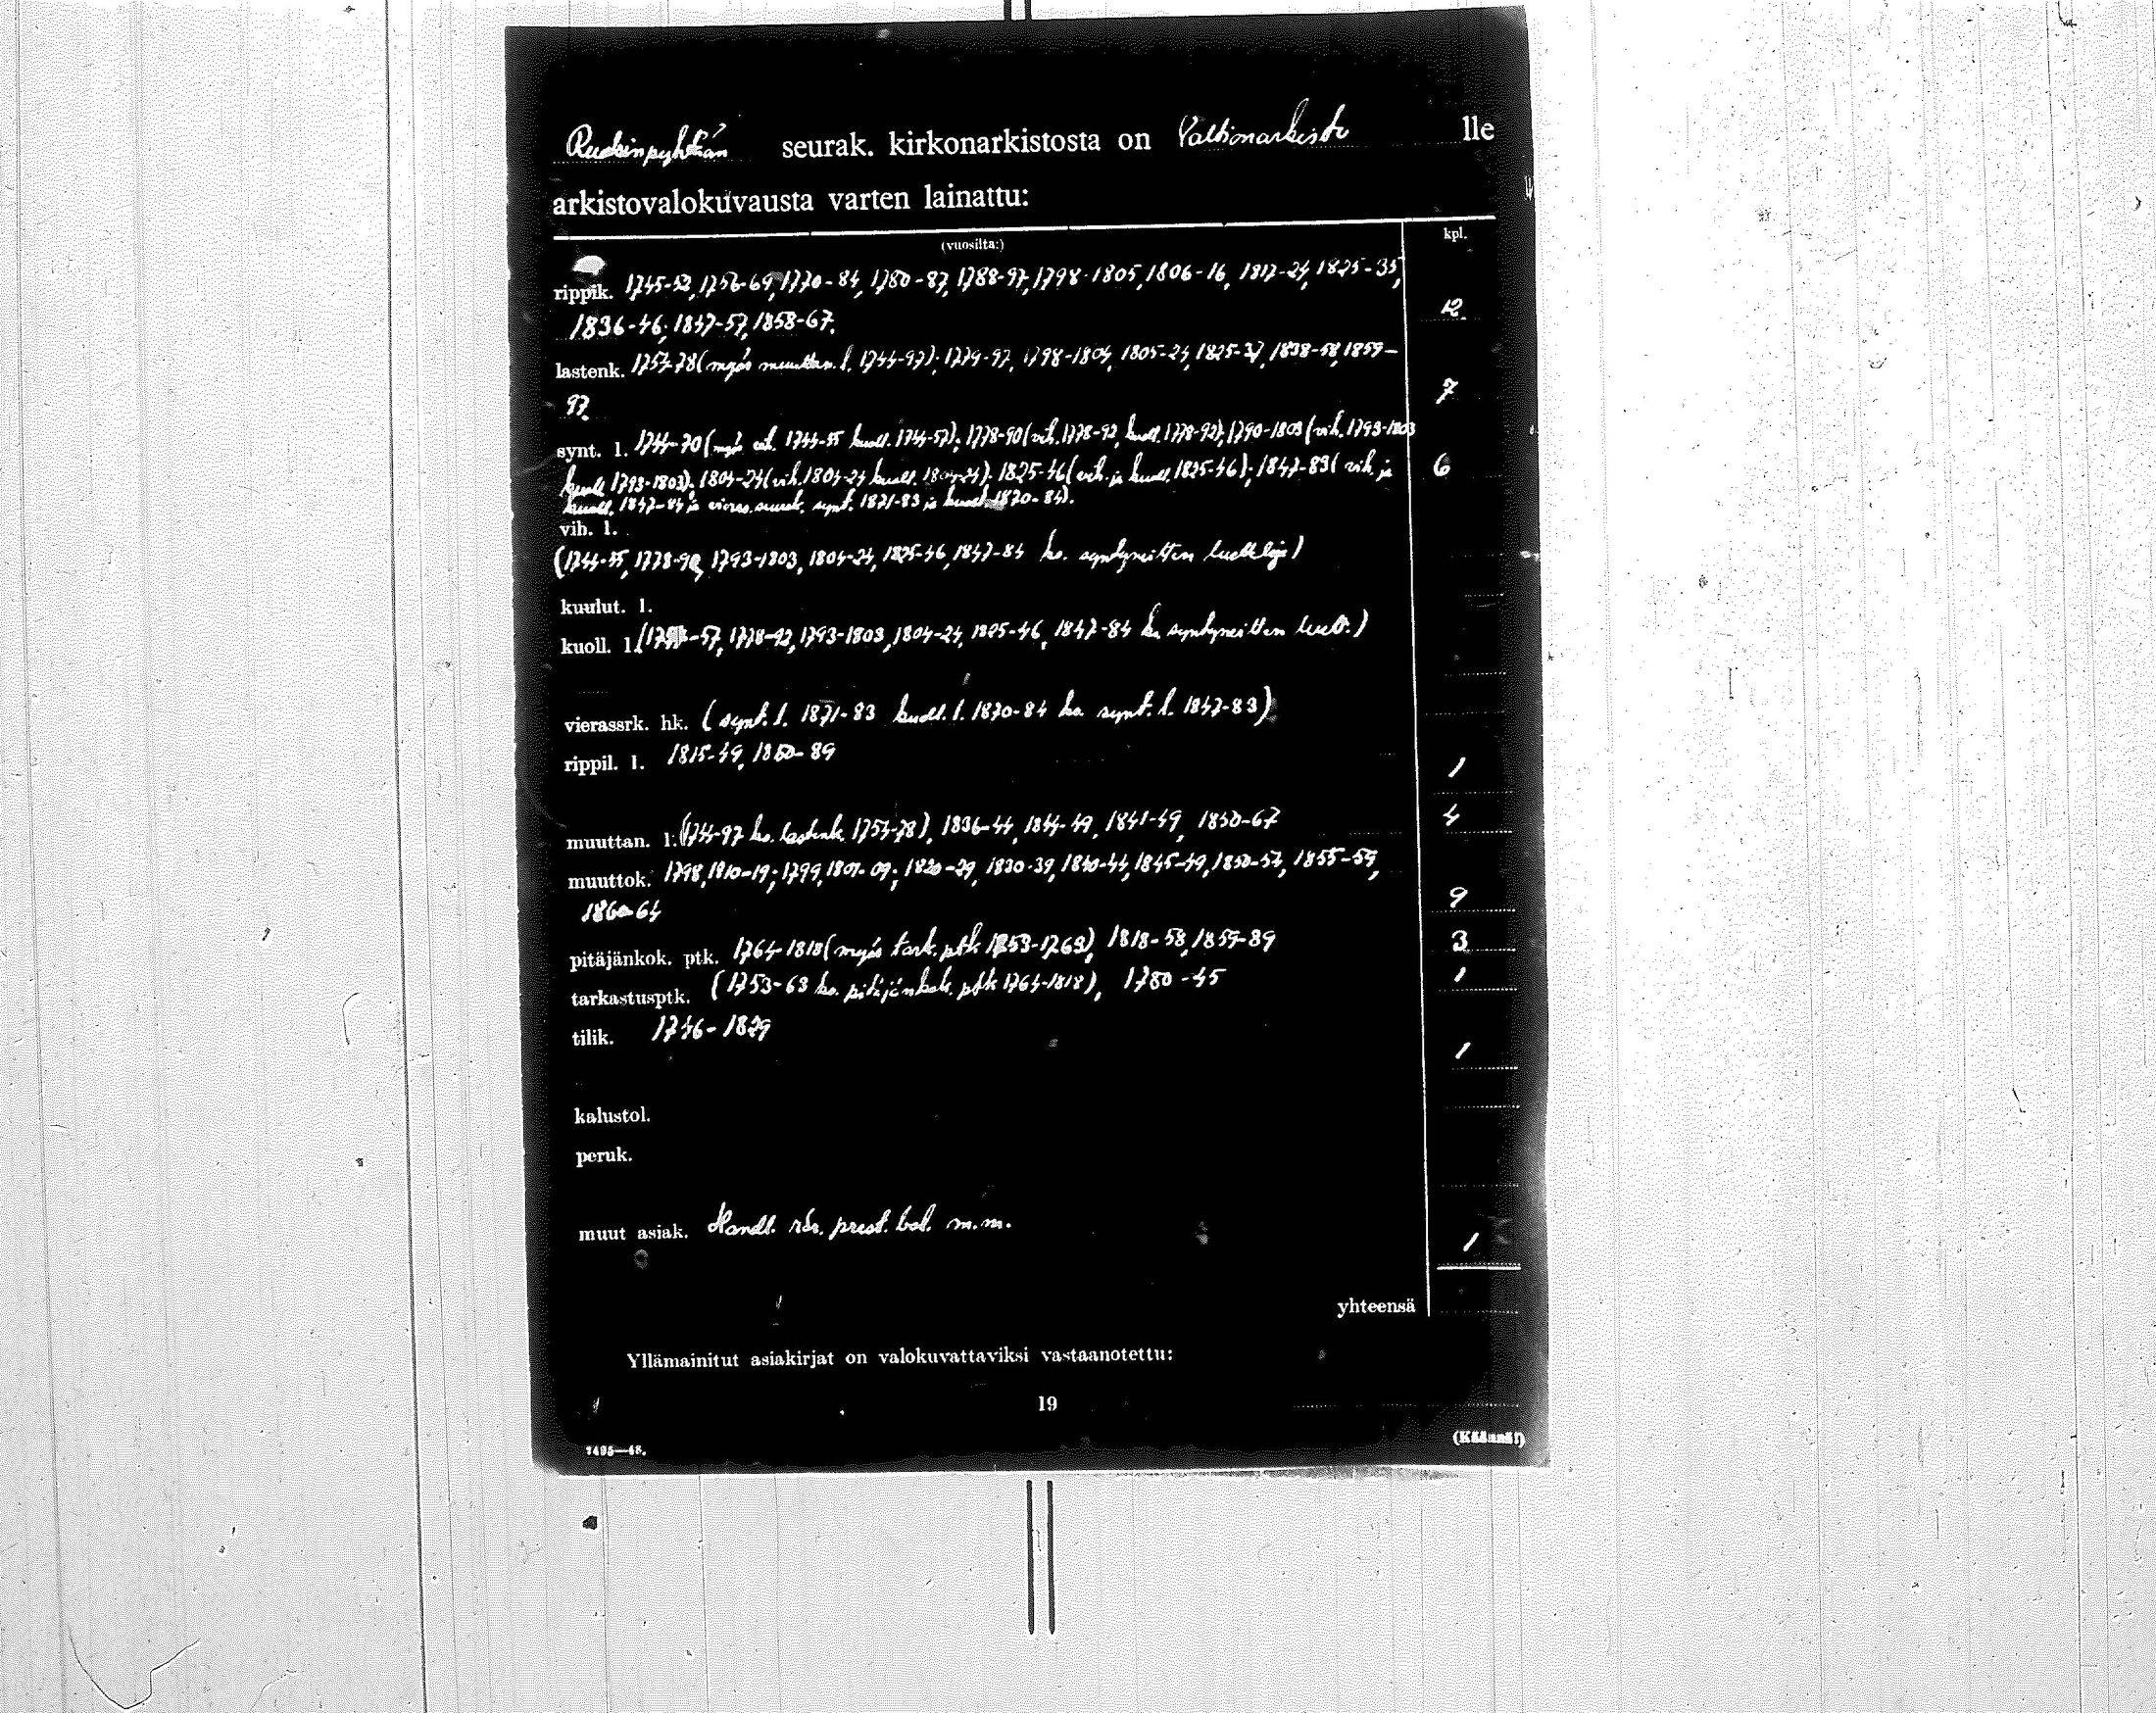 Ruotsinpyhtään seurak. kirkonarkistosta on Valtionarkisto lle
arkistovalokuvausta varten lainattu:
(vuosilta:) kpl.
rippik. 1745-52, 1756-69, 1770-84, 1780-87, 1788-97, 1798-1805, 1806-16, 1817-24, 1825-35,
1836-46, 1847-57, 1858-67. 12
lastenk. 1757-78 (myös muuttan. l. 1744-97), 1779-97, 1798-1804, 1805-24, 1825-37, 1838-58, 1859-
97. 7
synt. l. 1744-70 (myös vih. 1744-55 kuoll. 1744-57), 1778-90 (vih. 1778-92, kuoll. 1778-92), 1790-1803 (vih. 1793-1803
kuoll. 1793-1803), 1804-24 (vih. 1804-24 kuoll. 1804-24), 1825-46 (vih. ja kuoll. 1825-46), 1847-83 (vih. ja 6
kuoll. 1847-84 ja vieras. seurak. synt. 1871-83 ja kuoll. 1870-84).
vih. l.
(1744-55, 1778-92, 1793-1803, 1804-24, 1825-46, 1847-84 ks. syntyneitten luetteloja)
kuulut. l.
kuoll. l. (-57, 1778-92, 1793-1803, 1804-24, 1825-46, 1847-84 ks. syntyneitten luett.)
vierassrk. hk. (synt. l. 1871-83 kuoll. l. 1870-84 ks. synt. l. 1847-83)
rippil. l. 1815-49, 1850-89 1
muuttan. l. (1744-97 ks. lastenk. 1757-78), 1836-44, 1844-49, 1841-49, 1850-67 4
muuttok. 1798, 1810-19; 1799, 1801-09; 1820-29, 1830-39, 1840-44, 1845-49, 1850-54, 1855-59,
1860-64 9
pitäjänkok. ptk. 1764-1818 (myös tark. ptk 1753-1763), 1818-58, 1859-89 3
tarkastusptk. (1753-63 ks. pitäjänkok. ptk 1764-1818), 1780-45 1
tilik. 1746-1829 1
kalustol.
peruk.
muut asiak. Handl. rör. prest. bol. m.m. 1
yhteensä
Yllämainitut asiakirjat on valokuvattaviksi vastaanotettu:
19
7495—48. (Käännä!)